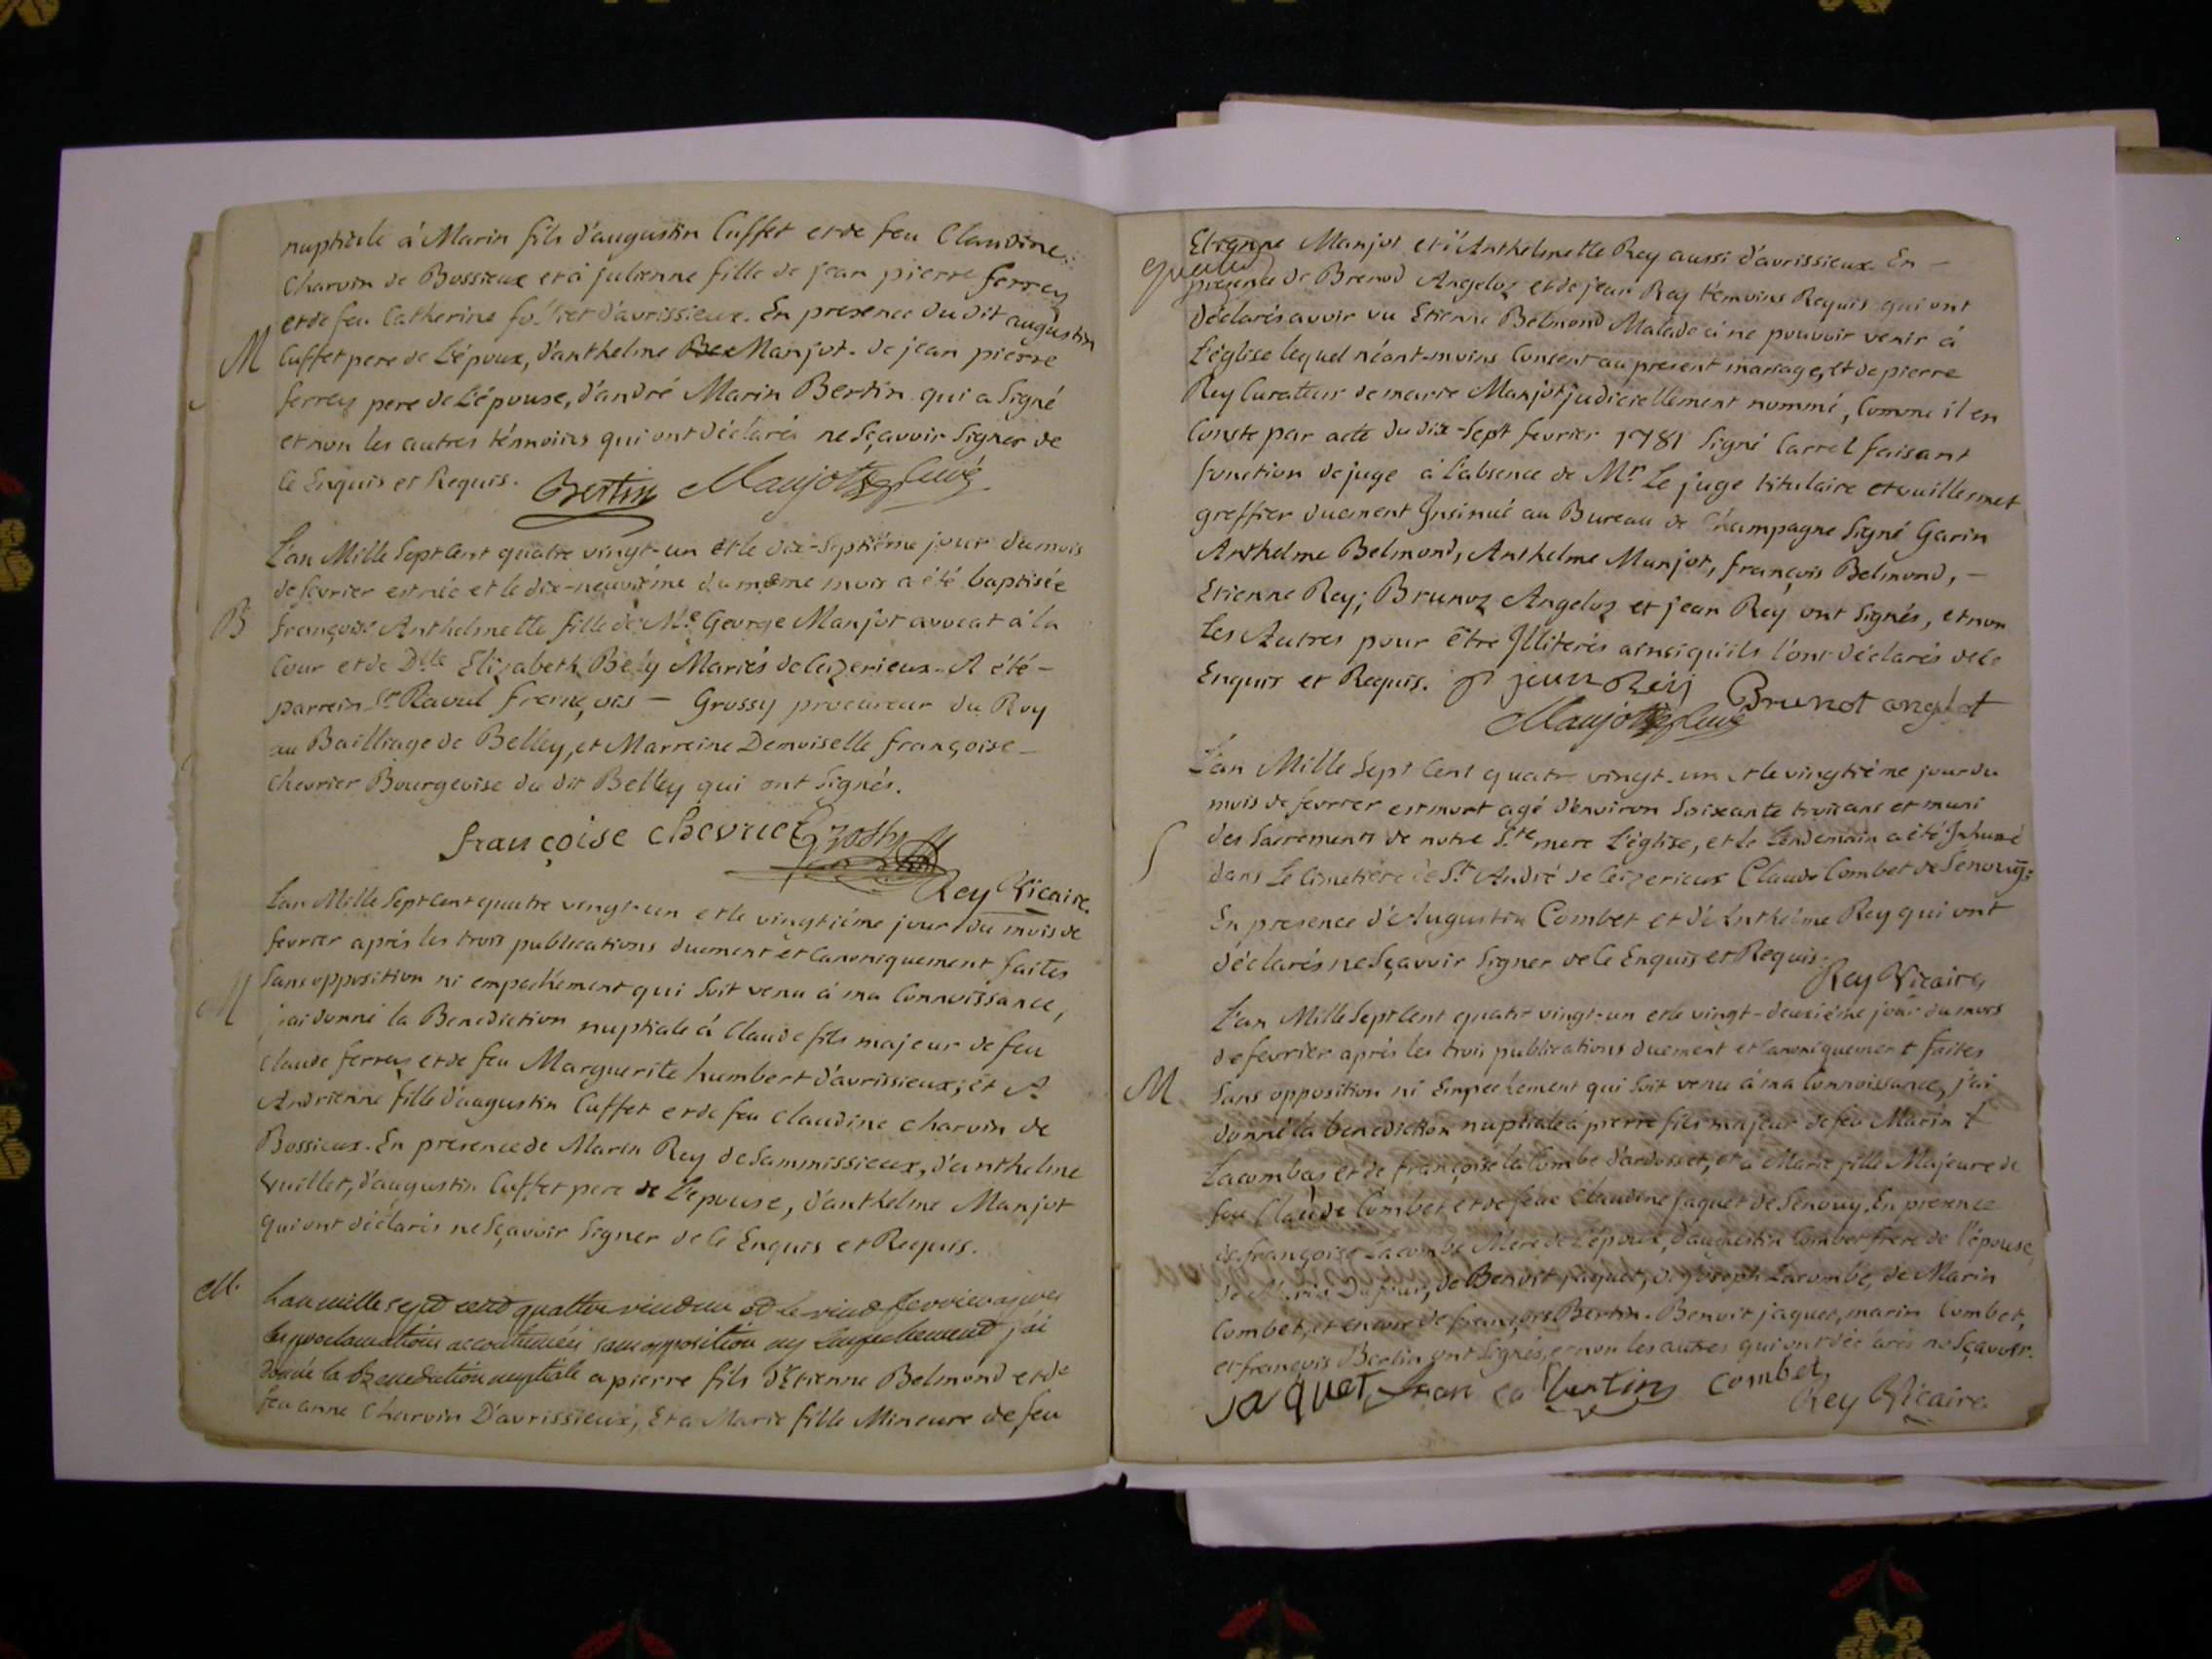 nuptiale á Marin fils d'augustin Cuffet et de feu Claudine
Charvin de Bossieux et á julienne fille de jean pierre ferrey
et de feu Catherine d'avrissieux. En presence du dit augustin
M Cuffet pere de L'époux, d'anthelme Manjot. de jean pierre
ferrey pere de L'épouse, d'andré Marin Bertin qui a Signé
et non les autres témoins qui ont déclarés ne Sçavoir Signer de
Ce Enquis et Requis. Bertin Manjot Curé
L'an Mille Sept Cent quatre vingt-un et le dix-Septiéme jour du mois
de fevrier est née et le dix-neuviéme du même mois a été baptisée
B françoise Anthelmette fille de Me George Manjot avocat á la
Cour et de Dlle Elizabeth Bély Mariés de Ceizerieux. A été -
parrein Sr Raoul françois - Grossy procureur du Roy
au Bailliage de Belley, et Marreine Demoiselle françoise -
Chevrier Bourgeoise du dit Belley qui ont Signés.
françoise Chevrier Grossy
Rey Vicaire
L'an Mille Sept Cent quatre vingt-un et le vingtiéme jour du mois de
fevrier aprés les trois publications duement et Canoniquement faites
Sans opposition ni empechement qui Soit venu á ma Connoissance,
M j'ai donné la Benediction nuptiale á Claude fils majeur de feu
Claude ferrey et de feu Marguerite humbert d'avrissieux; et A
Andrienne fille d'augustin Cuffet et de feu Claudine Charvin de
Bossieux. En presence de Marin Rey de Sammissieux, d'anthelme
Vuillet, d'augustin Cuffet pere de L'epouse, d'anthelme Manjot
qui ont déclarés ne Sçavoir Signer de Ce Enquis et Requis.
M. L'an mille sept cent quattre vint un et le vint fevrier apres
les proclamations accoutumées sans opposition ny empechement j'ai
donné la Benediction nuptiale a pierre fils d'Etienne Belmond et de
feu anne Charvin D'avrissieux, Et a Marie fille Mineure de feu
Etienne Manjot et d'Anthelmette Rey aussi d'avrissieux. En -
presence de Brenod Angeloz et de jean Rey témoins Requis qui ont
Déclarés avoir vu Etienne Belmond Malade á ne pouvoir venir á
L'église lequel néant-moins Consent au present mariage, et de pierre
Rey Curateur de marie Manjot judiciellement nommé, Comme il en
Conste par acte du dix-Sept fevrier 1781 Signé Carrel faisant
fonction de juge á L'absence de Mr Le juge titulaire et vuillermet
greffier duement Insinué au Bureau de Champagne Signé Garin
Anthelme Belmond, Anthelme Manjot, françois Belmond, -
Etienne Rey; Brunoz Angeloz et jean Rey ont Signés, et non
Les Autres pour être Illiterés ainsi qu'ils l'ont déclarés de Ce
Enquis et Requis. jean Reÿ Brunot anglot
Manjot Curé
L'an Mille Sept Cent quatre vingt-un et le vingtiéme jour du
mois de fevrier est mort agé d'environ Soixante trois ans et muni
S des Sacrements de notre Ste mere L'église, et le Lendemain a été Inhumé
dans Le Cimetiére de St André de Ceizerieux Claude Combet de Senouÿ.
En presence d'Augustin Combet et d'Anthelme Rey qui ont
déclarés ne Sçavoir Signer de Ce Enquis et Requis.
Rey Vicaire
L'an Mille Sept Cent quatre vingt-un et le vingt-deuxiéme jour du mois
de fevrier aprés les trois publications duement et Canoniquement faites
M. Sans opposition ni Empechement qui Soit venu á ma Connoissance, j'ai
donné la benediction nuptiale á pierre fils majeur de feu Marin
Lacombas et de françoise la Combe d'ardosset, et a Marie fille Majeure de
feu Claude Combet et de feue Claudine jaquet de Senouy. En presence
de françoise Lacombe Mere de L'époux, d'augustin Combet frere de l'épouse,
de Marin Dufour, de Benoit jaquet, de joseph Lacombe, de Marin
Combet, et encore de françois Bertin. Benoit jaquet, marin Combet,
et françois Bertin ont Signés, et non les autres qui ont déclarés ne Sçavoir.
jaquet fran co Bertin Combet
Rey Vicaire